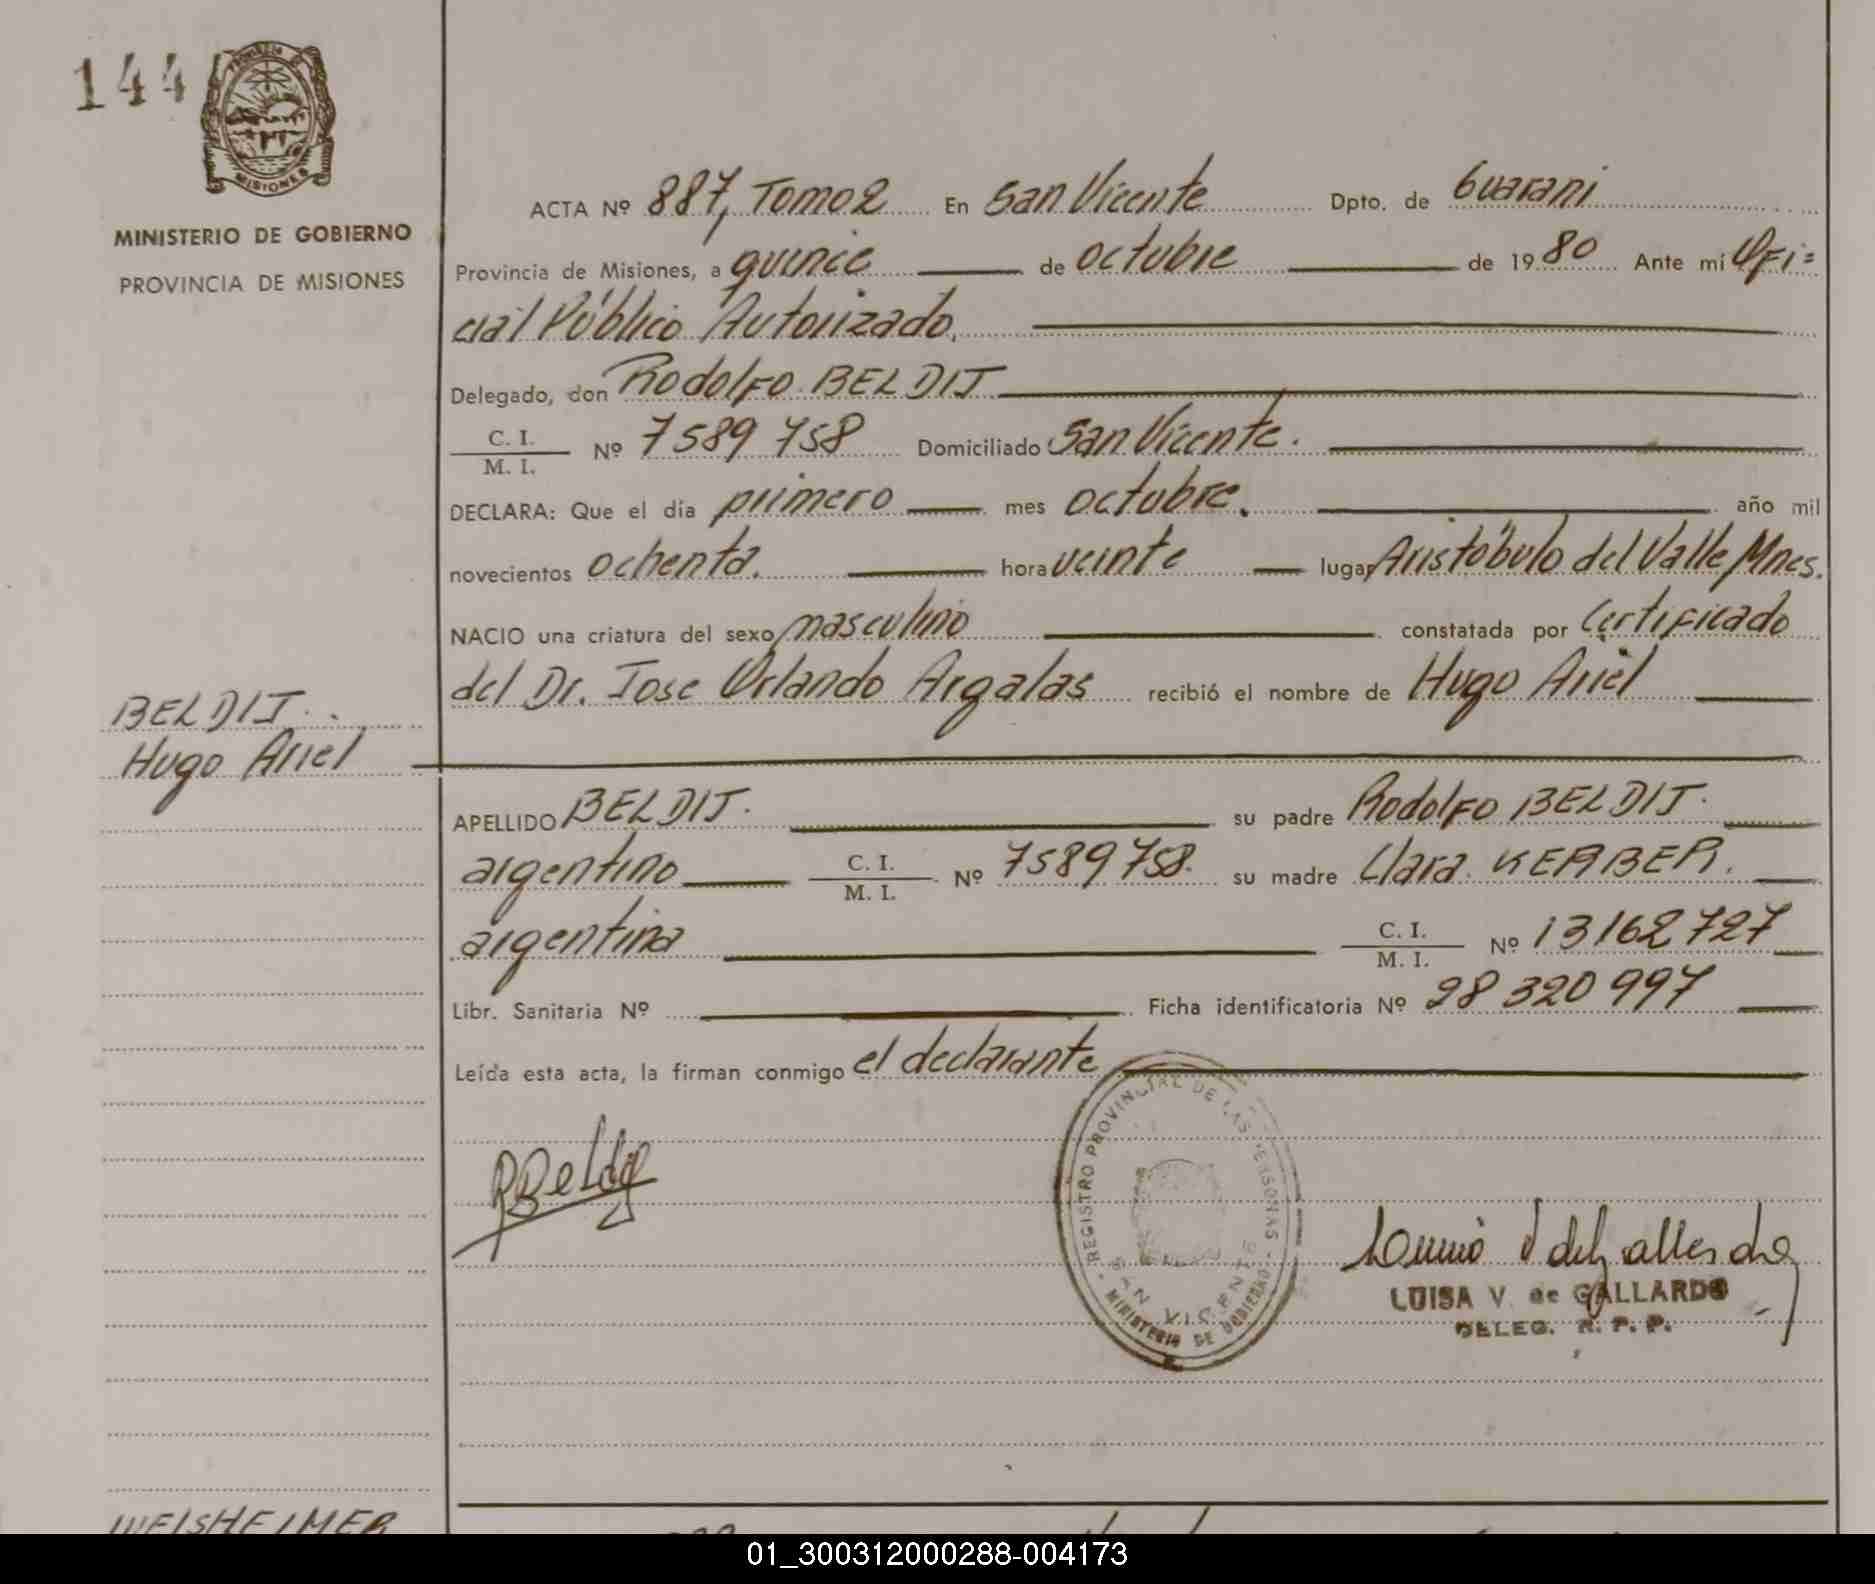 144
PROVINCIA DE
MISIONES
MINISTERIO DE GOBIERNO
PROVINCIA DE MISIONES
ACTA Nº 887, Tomo 2 En San Vicente Dpto. de Guarani
Provincia de Misiones, a quince de octubre de 1980 Ante mi Ofi=
cial Público Autorizado.
Delegado, don Rodolfo BELDIJ
C. I.
M. I. Nº 7589758 Domiciliado San Vicente.
DECLARA: Que el día primero mes octubre. año mil
novecientos ochenta. hora veinte lugar Aristóbulo del Valle Mnes.
NACIO una criatura del sexo masculino constatada por Certificado
del Dr. Jose Orlando Argalas recibió el nombre de Hugo Ariel
BELDIJ.
Hugo Ariel
APELLIDO BELDIJ. su padre Rodolfo BELDIJ.
argentino C. I. M. I. Nº 7589758. su madre Clara KERBER.
argentina C. I. M. I. Nº 13162727
Libr. Sanitaria Nº Ficha identificatoria Nº 28320997
Leída esta acta, la firman conmigo el declarante
REGISTRO PROVINCIAL DE LAS PERSONAS
SAN VICENTE
MINISTERIO DE GOBIERNO
LUISA V. de GALLARDO
DELEG. R. P. P.
WEISHEIMER
01_300312000288-004173